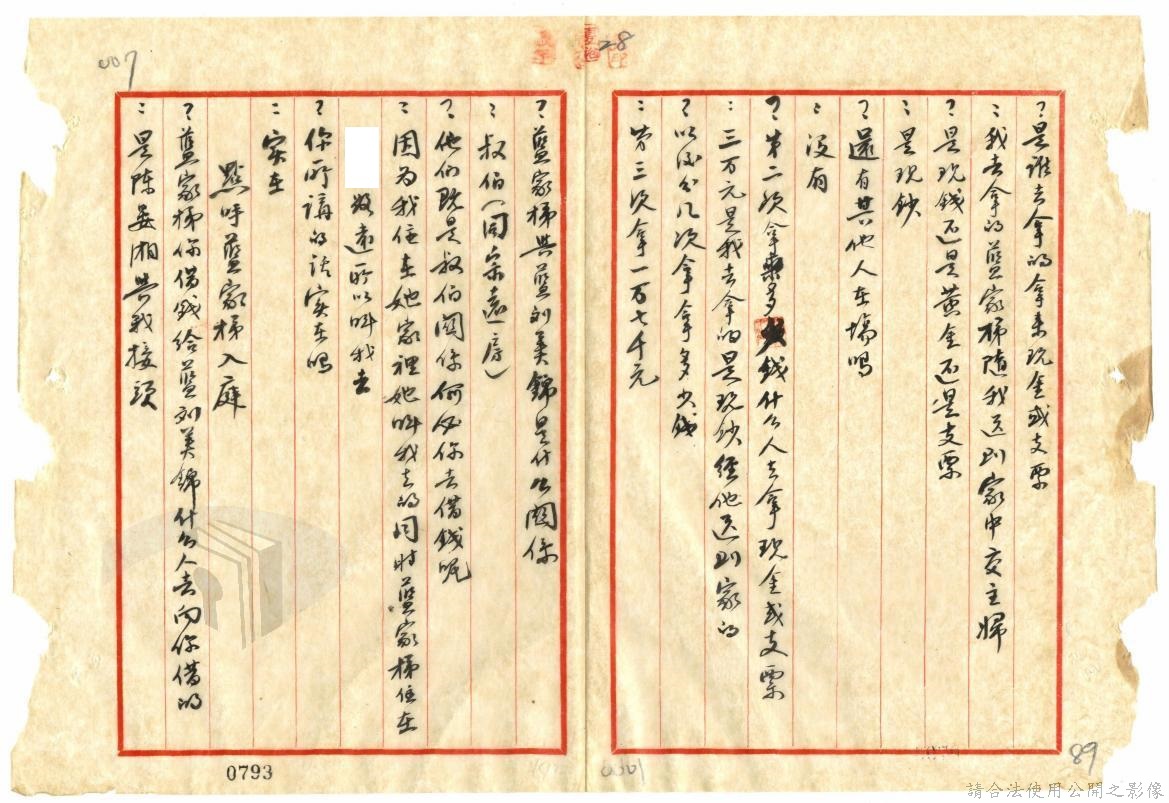 28
007
?是誰去拿的拿來現金或支票
:我去拿的藍家梯隨我送到家中交主婦
?是現錢还是黃金还是支票
:是現鈔
?還有其他人在場嗎
:沒有
?第二次拿多少錢什么人去拿現金或支票
:三万元是我去拿的是現鈔經他送到家的
?以后分几次拿拿多少錢
:第三次拿一万七千元
?藍家梯與藍刘美錦是什么関係
:叔伯(同宗遠房)
?他们既是叔伯関係何必你去借錢呢
:因为我住在她家裡她叫我去的同时藍家梯住在
敦遠所以叫我去
?你所講的话实在嗎
:实在
點呼藍家梯入庭
?藍家梯你借錢給藍刘美錦什么人去向你借的
:是陈晏湘與我接頭
0793
0001
89
請合法使用公開之影像